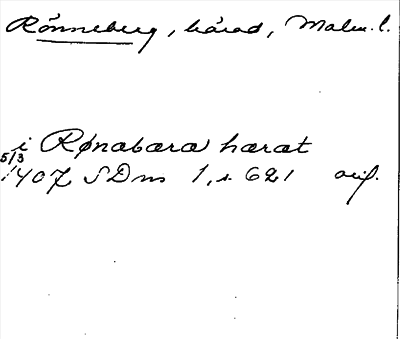 Rönneberg, härad, Malm. l.
i Rønabæra hæræt
5/3
1407 SDns 1, s. 621 orig.